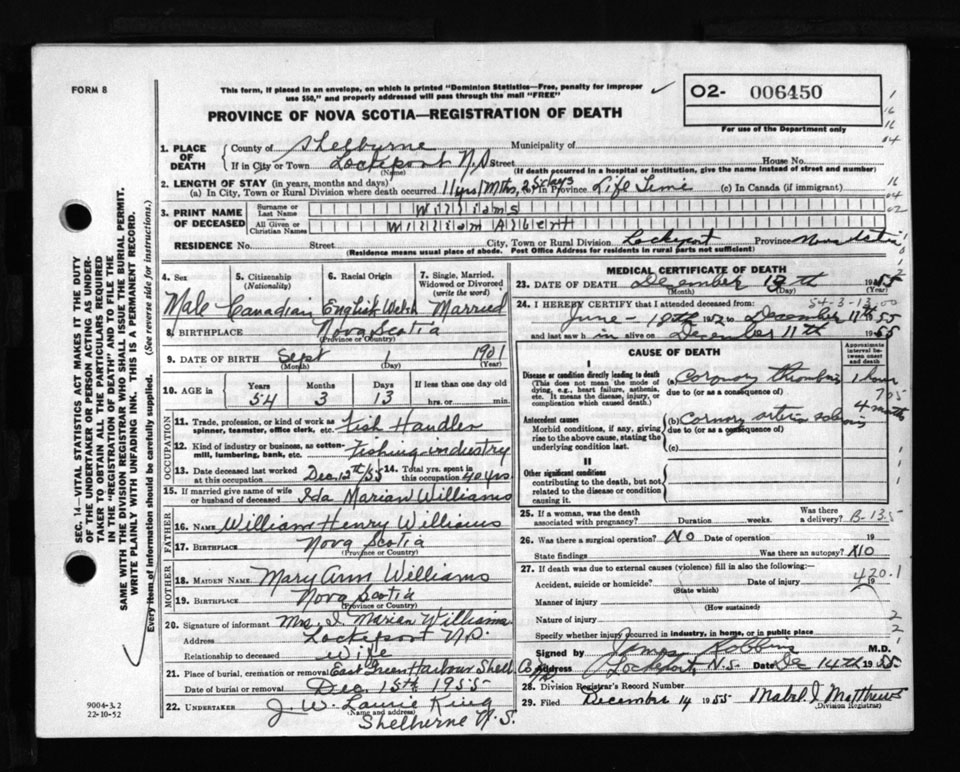 FORM 8
This form, if placed in an envelope, on which is printed "Dominion Statistics—Free, penalty for improper
use $50," and properly addressed will pass through the mail "FREE"
O2- 006450
PROVINCE OF NOVA SCOTIA—REGISTRATION OF DEATH
For use of the Department only
1. PLACE OF DEATH
County of Shelburne Municipality of
If in City or Town Lockeport N.S Street House No.
(Name) (If death occurred in a hospital or institution, give the name instead of street and number)
2. LENGTH OF STAY (in years, months and days)
(a) In City, Town or Rural Division where death occurred 11 yrs/ Mths, 25 days (b) In Province Life Time (c) In Canada (if immigrant)
3. PRINT NAME OF DECEASED
Surname or Last Name Williams
All Given or Christian Names William Albert
RESIDENCE No. Street City, Town or Rural Division Lockeport Province Nova Scotia
(Residence means usual place of abode. Post Office Address for residents in rural parts not sufficient)
4. Sex 5. Citizenship (Nationality) 6. Racial Origin 7. Single, Married, Widowed or Divorced (write the word)
Male Canadian English Welsh Married
8. BIRTHPLACE Nova Scotia
(Province or Country)
9. DATE OF BIRTH Sept 1 1901
(Month) (Day) (Year)
10. AGE in Years Months Days If less than one day old
54 3 13 hrs. or min.
OCCUPATION
11. Trade, profession, or kind of work as spinner, teamster, office clerk, etc. Fish Handler
12. Kind of industry or business, as cotton-mill, lumbering, bank, etc. Fishing industry
13. Date deceased last worked at this occupation Dec. 12th/55 14. Total yrs. spent in this occupation 40 yrs.
15. If married give name of wife or husband of deceased Ida Marian Williams
FATHER
16. NAME William Henry Williams
17. BIRTHPLACE Nova Scotia
(Province or Country)
MOTHER
18. MAIDEN NAME Mary Ann Williams
19. BIRTHPLACE Nova Scotia
(Province or Country)
20. Signature of informant Mrs. I. Marian Williams
Address Lockeport N.S.
Relationship to deceased Wife
21. Place of burial, cremation or removal East Green Harbour Shell. Co.
Date of burial or removal Dec. 15th 1955
22. UNDERTAKER J. W. Laurie King
(Name and address)
Shelburne N.S.
MEDICAL CERTIFICATE OF DEATH
23. DATE OF DEATH December 13th 1955
(Month) (Day) (Year)
54-3-13-00
24. I HEREBY CERTIFY that I attended deceased from:
June - 18th 1952 to December 11th 1955
and last saw him alive on December 11th 1955
CAUSE OF DEATH
Approximate interval between onset and death
I
Disease or condition directly leading to death
(This does not mean the mode of dying, e.g., heart failure, asthenia, etc. It means the disease, injury, or complication which caused death.)
(a) Coronary thrombosis 1 hour
due to (or as a consequence of)
Antecedent causes
Morbid conditions, if any, giving rise to the above cause, stating the underlying condition last.
(b) Coronary 4 months
due to (or as a consequence of)
(c)
II
Other significant conditions
contributing to the death, but not related to the disease or condition causing it.
25. If a woman, was the death associated with pregnancy? Duration weeks. Was there a delivery? B-13.5
26. Was there a surgical operation? NO Date of operation 19
State findings Was there an autopsy? NO
27. If death was due to external causes (violence) fill in also the following:
Accident, suicide or homicide? Date of injury 19
(State which)
420.1
Manner of injury
(How sustained)
Nature of injury
Specify whether injury occurred in industry, in home, or in public place
Signed by James Robbins M.D.
Address Lockeport, N.S. Date Dec 14th 1955
28. Division Registrar's Record Number
29. Filed December 14 1955 Mabel I. Matthews
(Division Registrar)
9004-3.2
22-10-52
SEC. 14—VITAL STATISTICS ACT MAKES IT THE DUTY
OF THE UNDERTAKER OR PERSON ACTING AS UNDER-
TAKER TO OBTAIN ALL THE PARTICULARS REQUIRED
IN THE "REGISTRATION OF DEATH" AND TO FILE THE
SAME WITH THE DIVISION REGISTRAR WHO SHALL ISSUE THE BURIAL PERMIT.
WRITE PLAINLY WITH UNFADING INK. THIS IS A PERMANENT RECORD.
Every item of information should be carefully supplied. (See reverse side for instructions.)